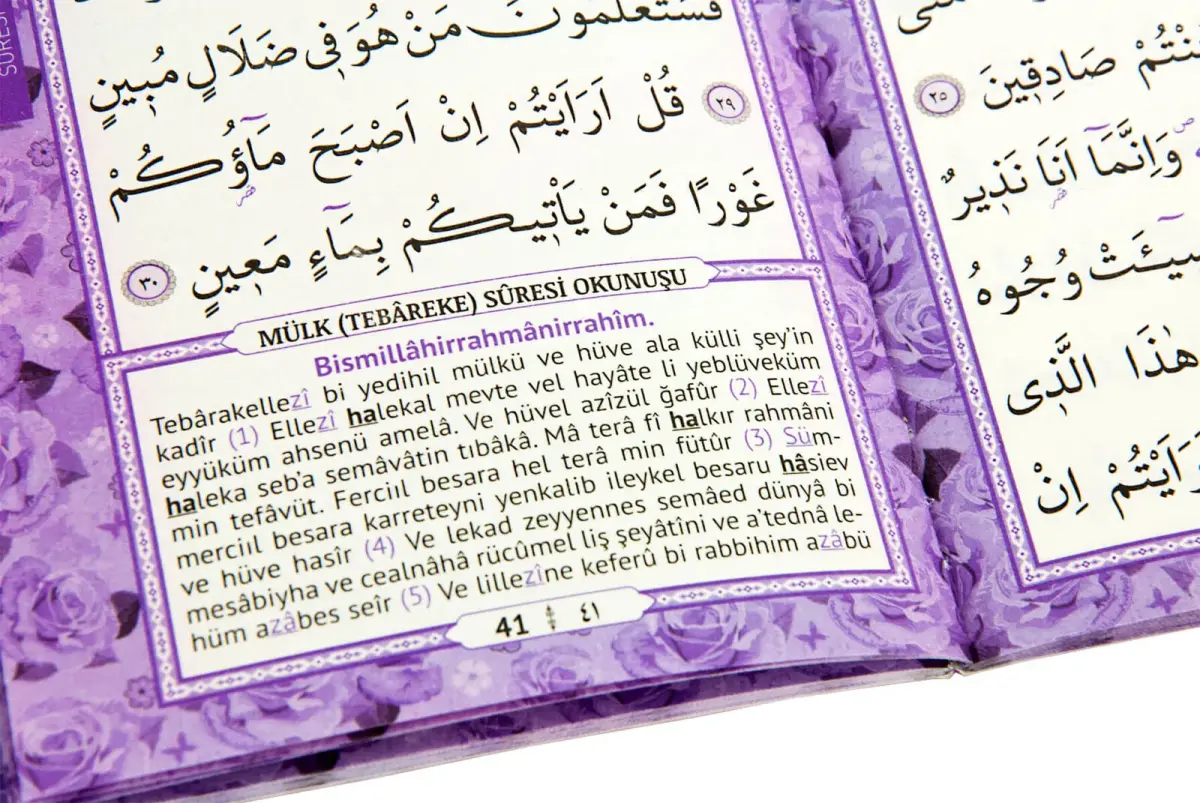 صَادِقِينَ ٢٥
وَاِنَّمَٓا اَنَا نَذِيرٌ
وُجُوهُ
هٰذَا الَّذِى
اِنْ
فَسَتَعْلَمُونَ مَنْ هُوَ فِى ضَلَالٍ مُبِينٍ
٢٩ قُلْ اَرَاَيْتُمْ اِنْ اَصْبَحَ مَٓاؤُكُمْ
غَوْرًا فَمَنْ يَاْتِيكُمْ بِمَٓاءٍ مَعِينٍ ٣٠
MÜLK (TEBÂREKE) SÛRESİ OKUNUŞU
Bismillâhirrahmânirrahîm.
Tebârakellezî bi yedihil mülkü ve hüve ala külli şey'in
kadîr (1) Ellezî halekal mevte vel hayâte li yeblüveküm
eyyüküm ahsenü amelâ. Ve hüvel azîzül ğafûr (2) Ellezî
haleka seb'a semâvâtin tıbâkâ. Mâ terâ fî halkır rahmâni
min tefâvüt. Ferciıl besara hel terâ min fütûr (3) Süm-
merciıl besara karreteyni yenkalib ileykel besaru hâsiev
ve hüve hasîr (4) Ve lekad zeyyennes semâed dünyâ bi
mesâbiyha ve cealnâhâ rücûmel liş şeyâtîni ve a'tednâ le-
hüm azâbes seîr (5) Ve lillezîne keferû bi rabbihim azâbü
41 ٤١